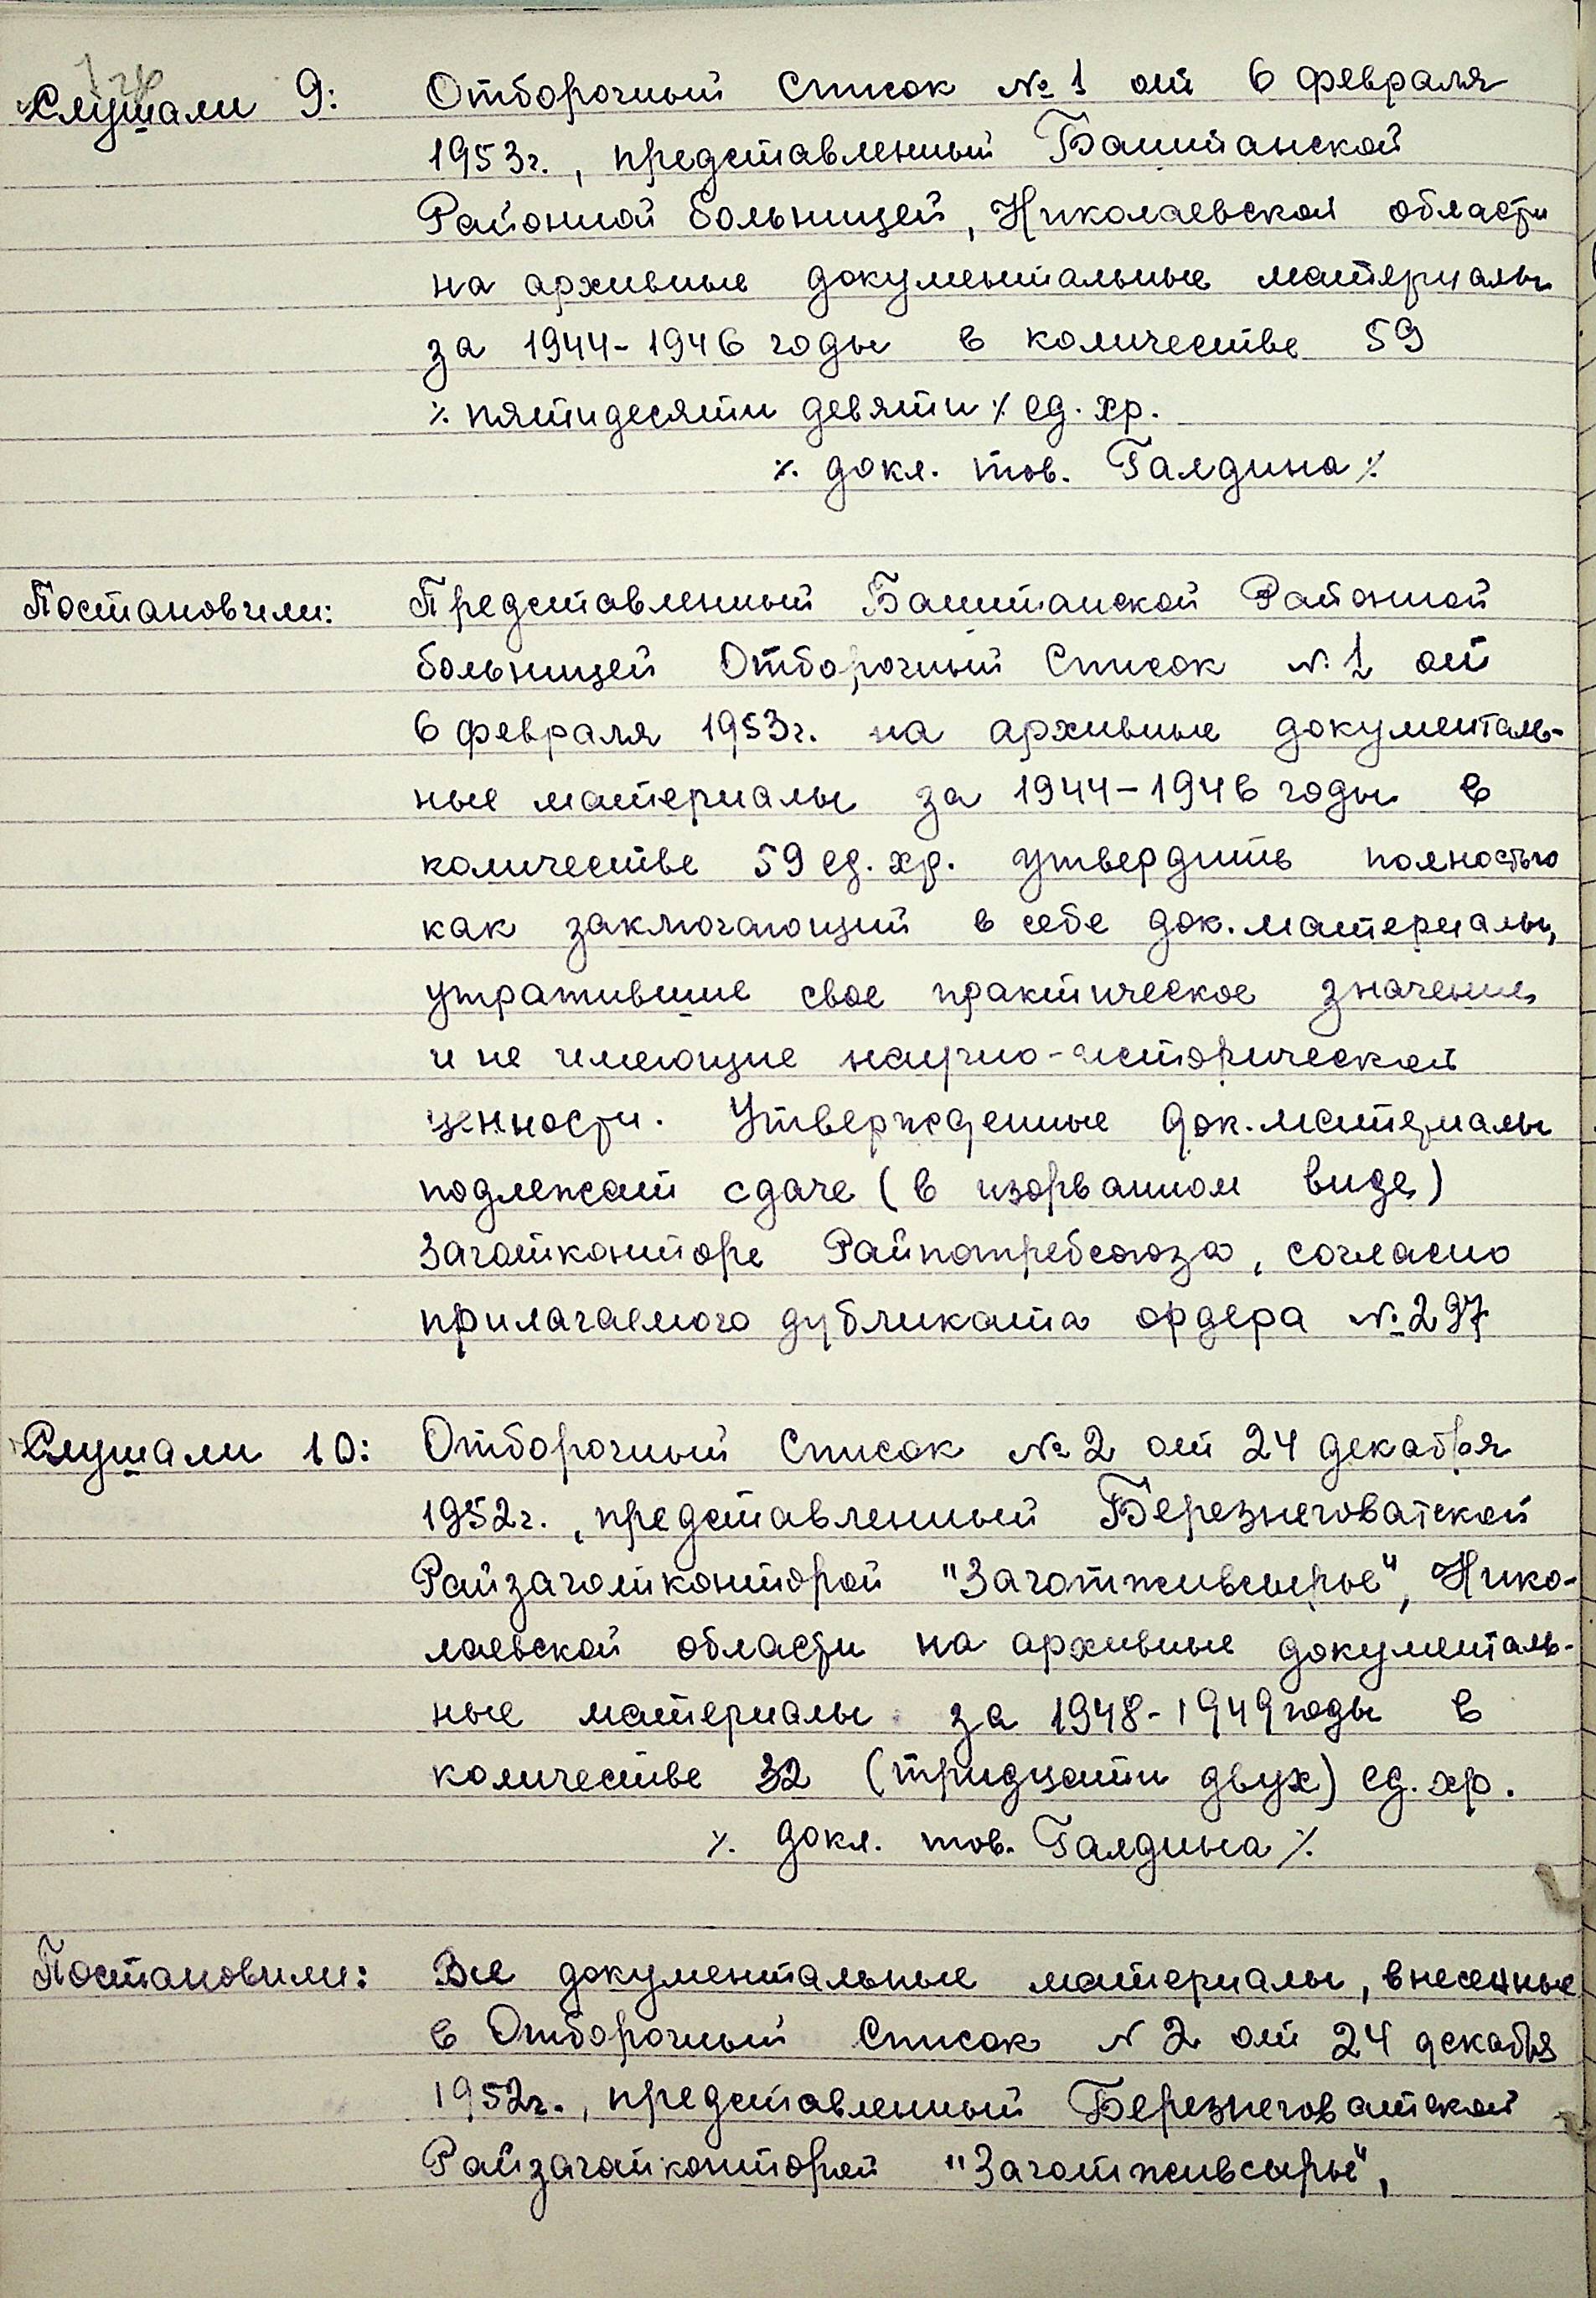 Слушали 9: Отборочный Список № 1 от 6 февраля
1953г., представленный Баштанской
Районной больницей, Николаевской области
на архивные документальные материалы
за 1944-1946 годы в количестве 59
٪ пятидесяти девяти ٪ ед. хр.
٪ докл. тов. Галдина ٪
Постановили: Представленный Баштанской Районной
больницей Отборочный Список №1 от
6 февраля 1953г. на архивные документаль-
ные материалы за 1944-1946 годы в
количестве 59 ед. хр. утвердить полностью
как заключающий в себе док. материалы,
утратившие свое практическое значение
и не имеющие научно-исторической
ценности. Утвержденные док. материалы
подлежат сдаче (в изорванном виде)
Заготконторе Райпотребсоюза, согласно
прилагаемого дубликата ордера №297
Слушали 10: Отборочный Список №2 от 24 декабря
1952г., представленный Березнеговатской
Райзаготконторой "Заготживсырье", Нико-
лаевской области на архивные докумeнталь-
ные материалы за 1948-1949 годы в
количестве 32 (тридцати двух) ед. хр.
٪ докл. тов. Галдина ٪
Постановили: Все документальные материалы, внесенные
в Отборочный Список N 2 от 24 декабря
1952г., представленный Березнеговатской
Райзаготконторой "Заготживсырье",